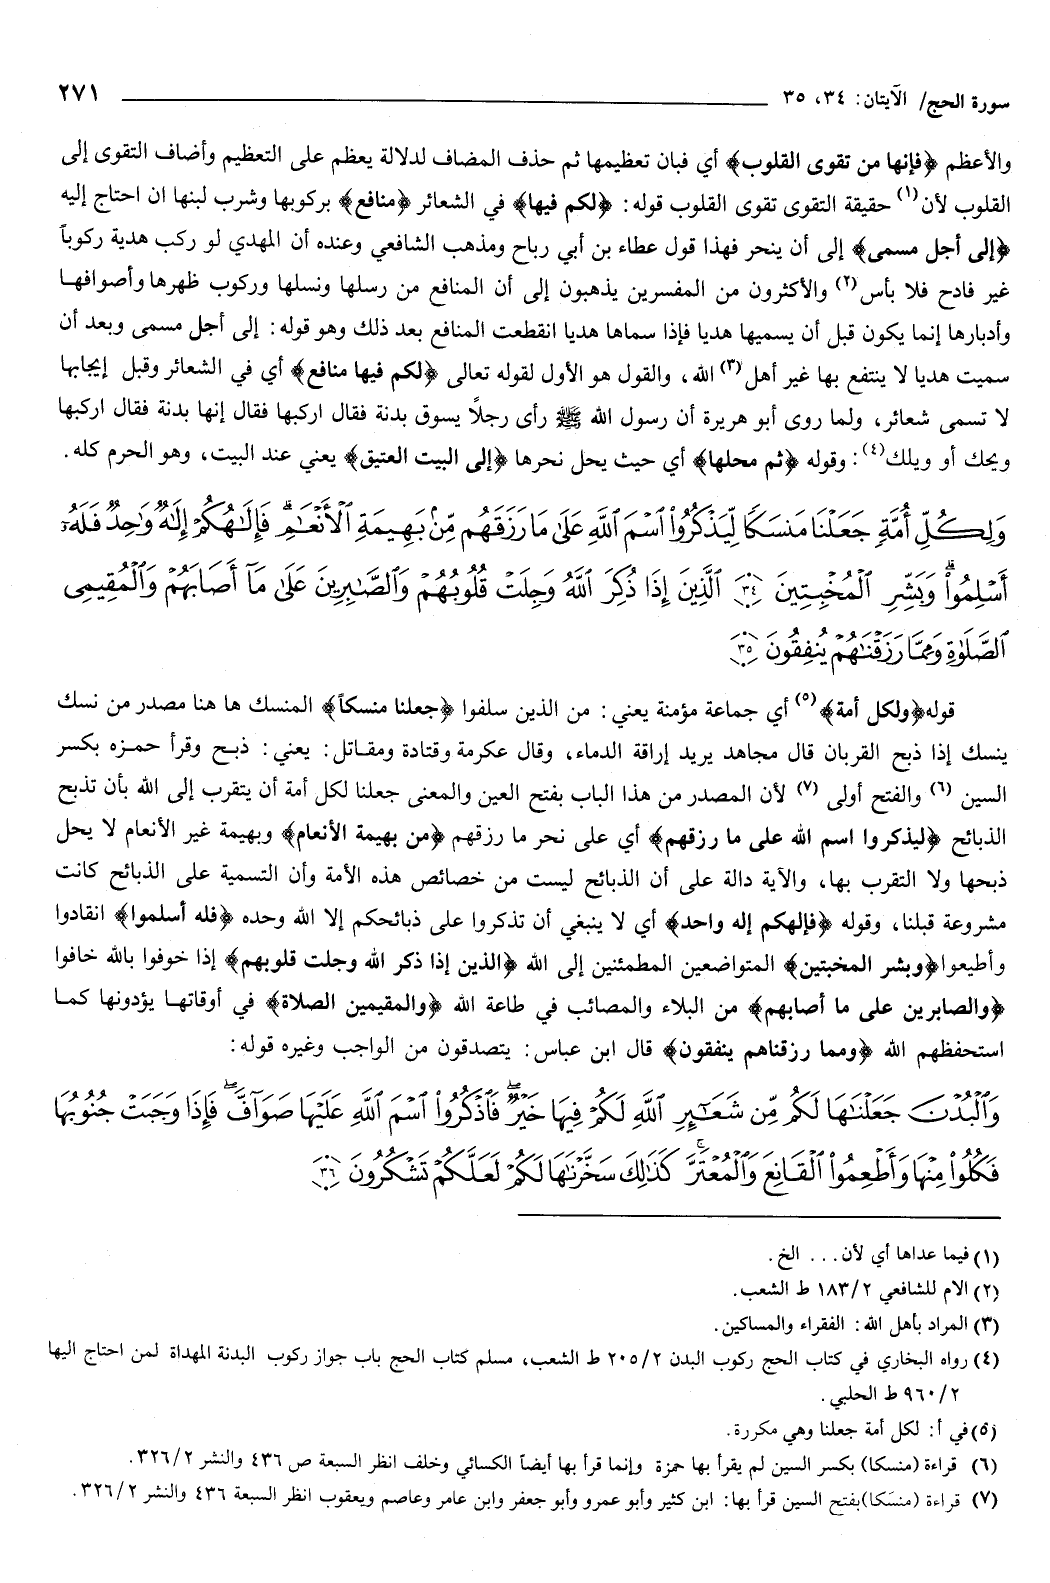 سورة الحج/ الآيتان: ٣٤، ٣٥ ٢٧١
والأعظم ﴿فإنها من تقوى القلوب﴾ أي فبان تعظيمها ثم حذف المضاف لدلالة يعظم على التعظيم وأضاف التقوى إلى
القلوب لأن(١) حقيقة التقوى تقوى القلوب قوله: ﴿لكم فيها﴾ في الشعائر ﴿منافع﴾ بركوبها وشرب لبنها ان احتاج إليه
﴿إلى أجل مسمى﴾ إلى أن ينحر فهذا قول عطاء بن أبي رباح ومذهب الشافعي وعنده أن المهدي لو ركب هدية ركوباً
غير فادح فلا بأس(٢) والأكثرون من المفسرين يذهبون إلى أن المنافع من رسلها ونسلها وركوب ظهرها وأصوافها
وأدبارها إنما يكون قبل أن يسميها هديا فإذا سماها هديا انقطعت المنافع بعد ذلك وهو قوله: إلى أجل مسمى وبعد أن
سميت هديا لا ينتفع بها غير أهل(٣) الله، والقول هو الأول لقوله تعالى ﴿لكم فيها منافع﴾ أي في الشعائر وقبل إيجابها
لا تسمى شعائر، ولما روى أبو هريرة أن رسول الله ﷺ رأى رجلاً يسوق بدنة فقال اركبها فقال إنها بدنة فقال اركبها
ويحك أو ويلك(٤): وقوله ﴿ثم محلها﴾ أي حيث يحل نحرها ﴿إلى البيت العتيق﴾ يعني عند البيت، وهو الحرم كله.
وَلِكُلِّ أُمَّةٍ جَعَلْنَا مَنسَكًا لِّيَذْكُرُوا۟ ٱسْمَ ٱللَّهِ عَلَىٰ مَا رَزَقَهُم مِّنۢ بَهِيمَةِ ٱلْأَنْعَـٰمِ ۗ فَإِلَـٰهُكُمْ إِلَـٰهٌ وَٰحِدٌ فَلَهُۥٓ
أَسْلِمُوا۟ ۗ وَبَشِّرِ ٱلْمُخْبِتِينَ ٣٤ ٱلَّذِينَ إِذَا ذُكِرَ ٱللَّهُ وَجِلَتْ قُلُوبُهُمْ وَٱلصَّـٰبِرِينَ عَلَىٰ مَآ أَصَابَهُمْ وَٱلْمُقِيمِى
ٱلصَّلَوٰةِ وَمِمَّا رَزَقْنَـٰهُمْ يُنفِقُونَ ٣٥
قوله﴿ولكل أمة﴾(٥) أي جماعة مؤمنة يعني: من الذين سلفوا ﴿جعلنا منسكاً﴾ المنسك ها هنا مصدر من نسك
ينسك إذا ذبح القربان قال مجاهد يريد إراقة الدماء، وقال عكرمة وقتادة ومقاتل: يعني: ذبح وقرأ حمزه بكسر
السين (٦) والفتح أولى (٧) لأن المصدر من هذا الباب بفتح العين والمعنى جعلنا لكل أمة أن يتقرب إلى الله بأن تذبح
الذبائح ﴿ليذكروا اسم الله على ما رزقهم﴾ أي على نحر ما رزقهم ﴿من بهيمة الأنعام﴾ وبهيمة غير الأنعام لا يحل
ذبحها ولا التقرب بها، والآية دالة على أن الذبائح ليست من خصائص هذه الأمة وأن التسمية على الذبائح كانت
مشروعة قبلنا، وقوله ﴿فإلهكم إله واحد﴾ أي لا ينبغي أن تذكروا على ذبائحكم إلا الله وحده ﴿فله أسلموا﴾ انقادوا
وأطيعوا﴿وبشر المخبتين﴾ المتواضعين المطمئنين إلى الله ﴿الذين إذا ذكر الله وجلت قلوبهم﴾ إذا خوفوا بالله خافوا
﴿والصابرين على ما أصابهم﴾ من البلاء والمصائب في طاعة الله ﴿والمقيمين الصلاة﴾ في أوقاتها يؤدونها كما
استحفظهم الله ﴿ومما رزقناهم ينفقون﴾ قال ابن عباس: يتصدقون من الواجب وغيره قوله:
وَٱلْبُدْنَ جَعَلْنَـٰهَا لَكُم مِّن شَعَـٰٓئِرِ ٱللَّهِ لَكُمْ فِيهَا خَيْرٌ ۖ فَٱذْكُرُوا۟ ٱسْمَ ٱللَّهِ عَلَيْهَا صَوَآفَّ ۖ فَإِذَا وَجَبَتْ جُنُوبُهَا
فَكُلُوا۟ مِنْهَا وَأَطْعِمُوا۟ ٱلْقَانِعَ وَٱلْمُعْتَرَّ ۚ كَذَٰلِكَ سَخَّرْنَـٰهَا لَكُمْ لَعَلَّكُمْ تَشْكُرُونَ ٣٦
(١) فيما عداها أي لأن... الخ.
(٢) الام للشافعي ١٨٣/٢ ط الشعب.
(٣) المراد بأهل الله: الفقراء والمساكين.
(٤) رواه البخاري في كتاب الحج ركوب البدن ٢٠٥/٢ ط الشعب، مسلم كتاب الحج باب جواز ركوب البدنة المهداة لمن احتاج اليها
٩٦٠/٢ ط الحلبي.
(٥) في أ: لكل أمة جعلنا وهي مكررة.
(٦) قراءة (منسكا) بكسر السين لم يقرأ بها حمزة وإنما قرأ بها أيضاً الكسائي وخلف انظر السبعة ص ٤٣٦ والنشر ٣٢٦/٢.
(٧) قراءة (منسَكا)بفتح السين قرأ بها: ابن كثير وأبو عمرو وأبو جعفر وابن عامر وعاصم ويعقوب انظر السبعة ٤٣٦ والنشر ٣٢٦/٢.